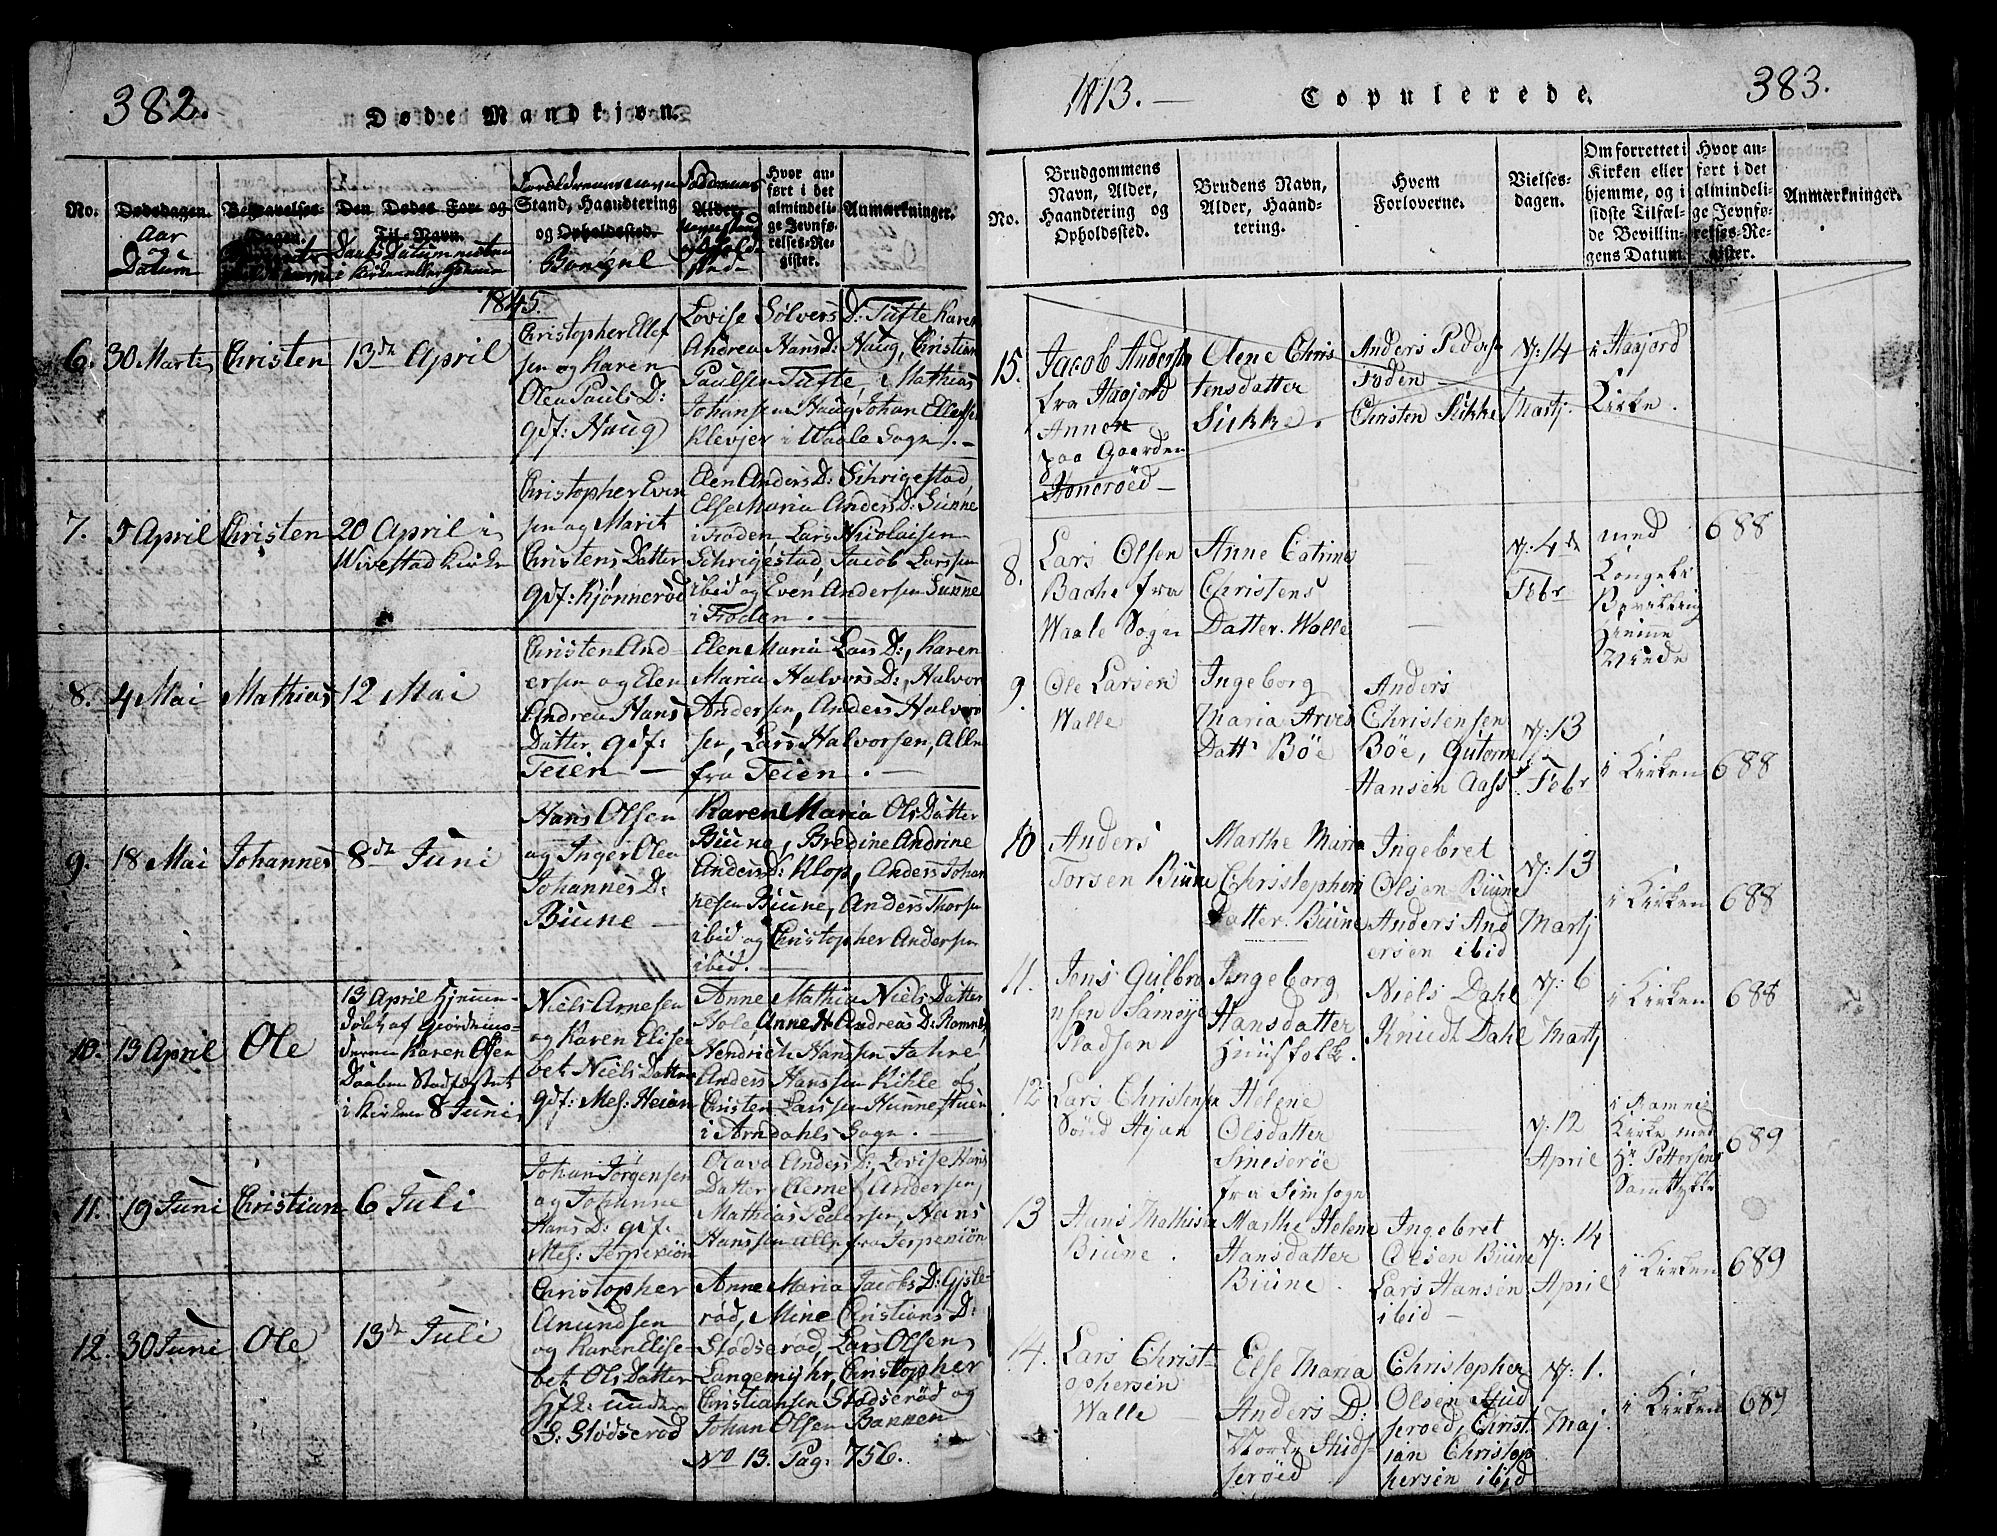 382.
Døde Mandkjøn.
No.
Dødsdagen.
Aar
Datum
Begravelses-
Dagen.
Den Dødes For- og
Til-Navn.
Daabs Datum
i Kirken eller Hjemme
Stand, Haandtering
og Opholdssted.
Alder.
Hvor an-
ført i det
almindeli-
ge Jevnfø-
relses-Re-
gister.
Anmærkninger.
1845.
6.
30 Marti
Christen
13de April
Christopher Ellef
sen og Karen
Olea Pauls D:
gdf: Haug
Lovise Sølvers D: Tufte Karen
Andrea Hans D: Haug, Christian
Paulsen Tufte, Mathias
Johansen Haug, Johan Ellefsen
Klevjer i Waale Sogn. -
7.
5 April
Christen
20 April i
Wivestad Kirke
Christopher Even
sen og Marit
Christens Datter
gdf: Kjønnerød
Elen Anders D: Sehrigestad,
Else Maria Anders D: Sunne
i Froden, Lars Nicolaisen
Sehrigestad, Jacob Larssen
ibid og Even Andersen Sunne
i Froden. -
8.
4 Mai
Mathias
12 Mai
Christen And-
ersen og Elen
Andrea Hans
Datter gdf:
Teien -
Elen Maria Lars D:, Karen
Maria Halvors D:, Halvor
Andersen, Anders Halvor
sen, Lars Halvorsen, Alle
fra Teien. -
9.
18 Mai
Johannes
8de Juni
Hans Olsen
og Inger Olea
Johannes D:
Biune -
Karen Maria Ols Datter
Biune, Bredine Andrine
Anders D: Klop, Anders Johan
nesen Biune, Anders Thorsen
ibid og Christopher Andersen
ibid. -
10.
13 April
Ole
13 April Hjemme-
døbt af Giordemo-
deren Karen Olsen
Daaben Stadfæstet
i Kirken 8 Juni
Niels Arnesen
og Karen Elisa
bet Niels Datter
gdf: Mes: Heian
Anne Mathia Niels Datter
Hole, Anne H Andreas D: Ramnes
Hendrich Hanssen Jahre
Anders Hanssen Kihle og
Christen Larssen Hunnestuen
i Arndahls Sogn. -
11.
19 Juni
Christian
6 Juli
Johan Jørgensen
og Johanne
Hans D: gdf:
Mes: Jerpekiön
Olava Anders D:, Lovise Hans
Datter, Clemet Andersen,
Mathias Pedersen, Hans
Hanssen alle fra Jerpekiön
12.
30 Juni
Ole
13de Juli
Christopher
Anundsen
og Karen Elise-
bet Ols Datter
Hf: under
S: Stødserød
Anne Maria Jacobs D: Gisle-
rød, Mine Christians D:
Stødserød, Lars Olsen
Langemyhr, Christopher
Christiansen Stødserød og
Johan Olsen Bakken
No 13. Pag: 756.
1813. -
Copulerede.
383.
No.
Brudgommens
Navn, Alder,
Haandtering og
Opholdssted.
Brudens Navn,
Alder, Haand-
tering.
Hvem
Forloverne.
Vielses-
dagen.
Om forrettet i
Kirken eller
hjemme, og i
sidste Tilfæl-
de Bevillin-
gens Datum.
Hvor an-
ført i det
almindeli-
ge Jevnfø-
relses-Re-
gister.
Anmærkninger.
15.
Jacob Andersen
fra Haajord
Annex
paa Gaarden
Honerøed -
Olene Chris
tensdatter
Sukke.
Anders Peders
Foden -
Christen Sukke
d: 14
Martj.
i Haajord
Kirke.
8.
Lars Olsen
Baahe fra
Waale Sogn
Anne Catrine
Christens
Datter. Walle
d: 4de
Febr
med
Kongebr
Bevilling
hiemme
Viede
688
9.
Ole Larsen
Walle
Ingeborg
Maria Arves
Datt: Böe
Anders
Christensen
Böe, Gutorm
Hansen Aass
d: 13
Febr
i Kirken
688
10
Anders
Torsen Biune
Marthe Maria
Christophers
Datter. Biune
Ingebret
Olsen Biune
Anders And
ersen ibid
d: 13
Martj
i Kirken
688
11.
Jens Gulbra
nsen Samøje
Pladsen
Ingeborg
Hansdatter
Huusfolk.
Niels Dahl
Knudt Dahl
d: 6
Martj
i Kirken
688
12
Lars Christensen
Sönd Hejan
Helene
Olsdatter
Sineseröe
fra Simsogn
d: 12
April
i Ramnes
Kirke med
Hr Pettersens
Samtykke
689
13
Hans Mathisen
Biune.
Marthe Helene
Hansdatter
Biune
Ingebret
Olsen Biune
Lars Hansen
ibid -
d: 14
April
i Kirken
689
14.
Lars Christ-
ophersen
Walle -
Else Maria
Anders D:
Nordre Skids-
seröed
Christopher
Olsen Skid
seröed, Christ
jan Christop
hersen ibid
d: 1.
Maj.
i Kirken
689